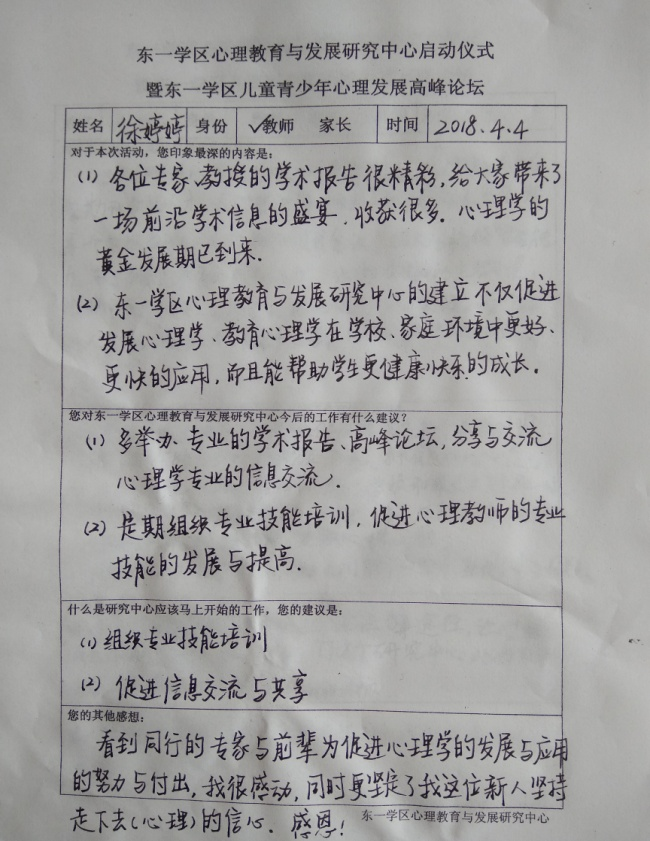 东一学区心理教育与发展研究中心启动仪式
暨东一学区儿童青少年心理发展高峰论坛
姓名 徐婷婷 身份 ✓教师 家长 时间 2018.4.4
对于本次活动，您印象最深的内容是：
(1) 各位专家、教授的学术报告很精彩，给大家带来了
一场前沿学术信息的盛宴，收获很多．心理学的
黄金发展期已到来．
(2) 东一学区心理教育与发展研究中心的建立不仅促进
发展心理学、教育心理学在学校、家庭环境中更好、
更快的应用，而且能帮助学生更健康快乐的成长。
您对东一学区心理教育与发展研究中心今后的工作有什么建议？
(1) 多举办、专业的学术报告、高峰论坛，分享与交流
心理学专业的信息交流．
(2) 是期组织专业技能培训，促进心理教师的专业
技能的发展与提高．
什么是研究中心应该马上开始的工作，您的建议是：
(1) 组织专业技能培训
(2) 促进信息交流与共享
您的其他感想：
看到同行的专家与前辈为促进心理学的发展与应用
的努力与付出，我很感动，同时更坚定了我这位新人坚持
走下去(心理)的信心．感恩！
东一学区心理教育与发展研究中心